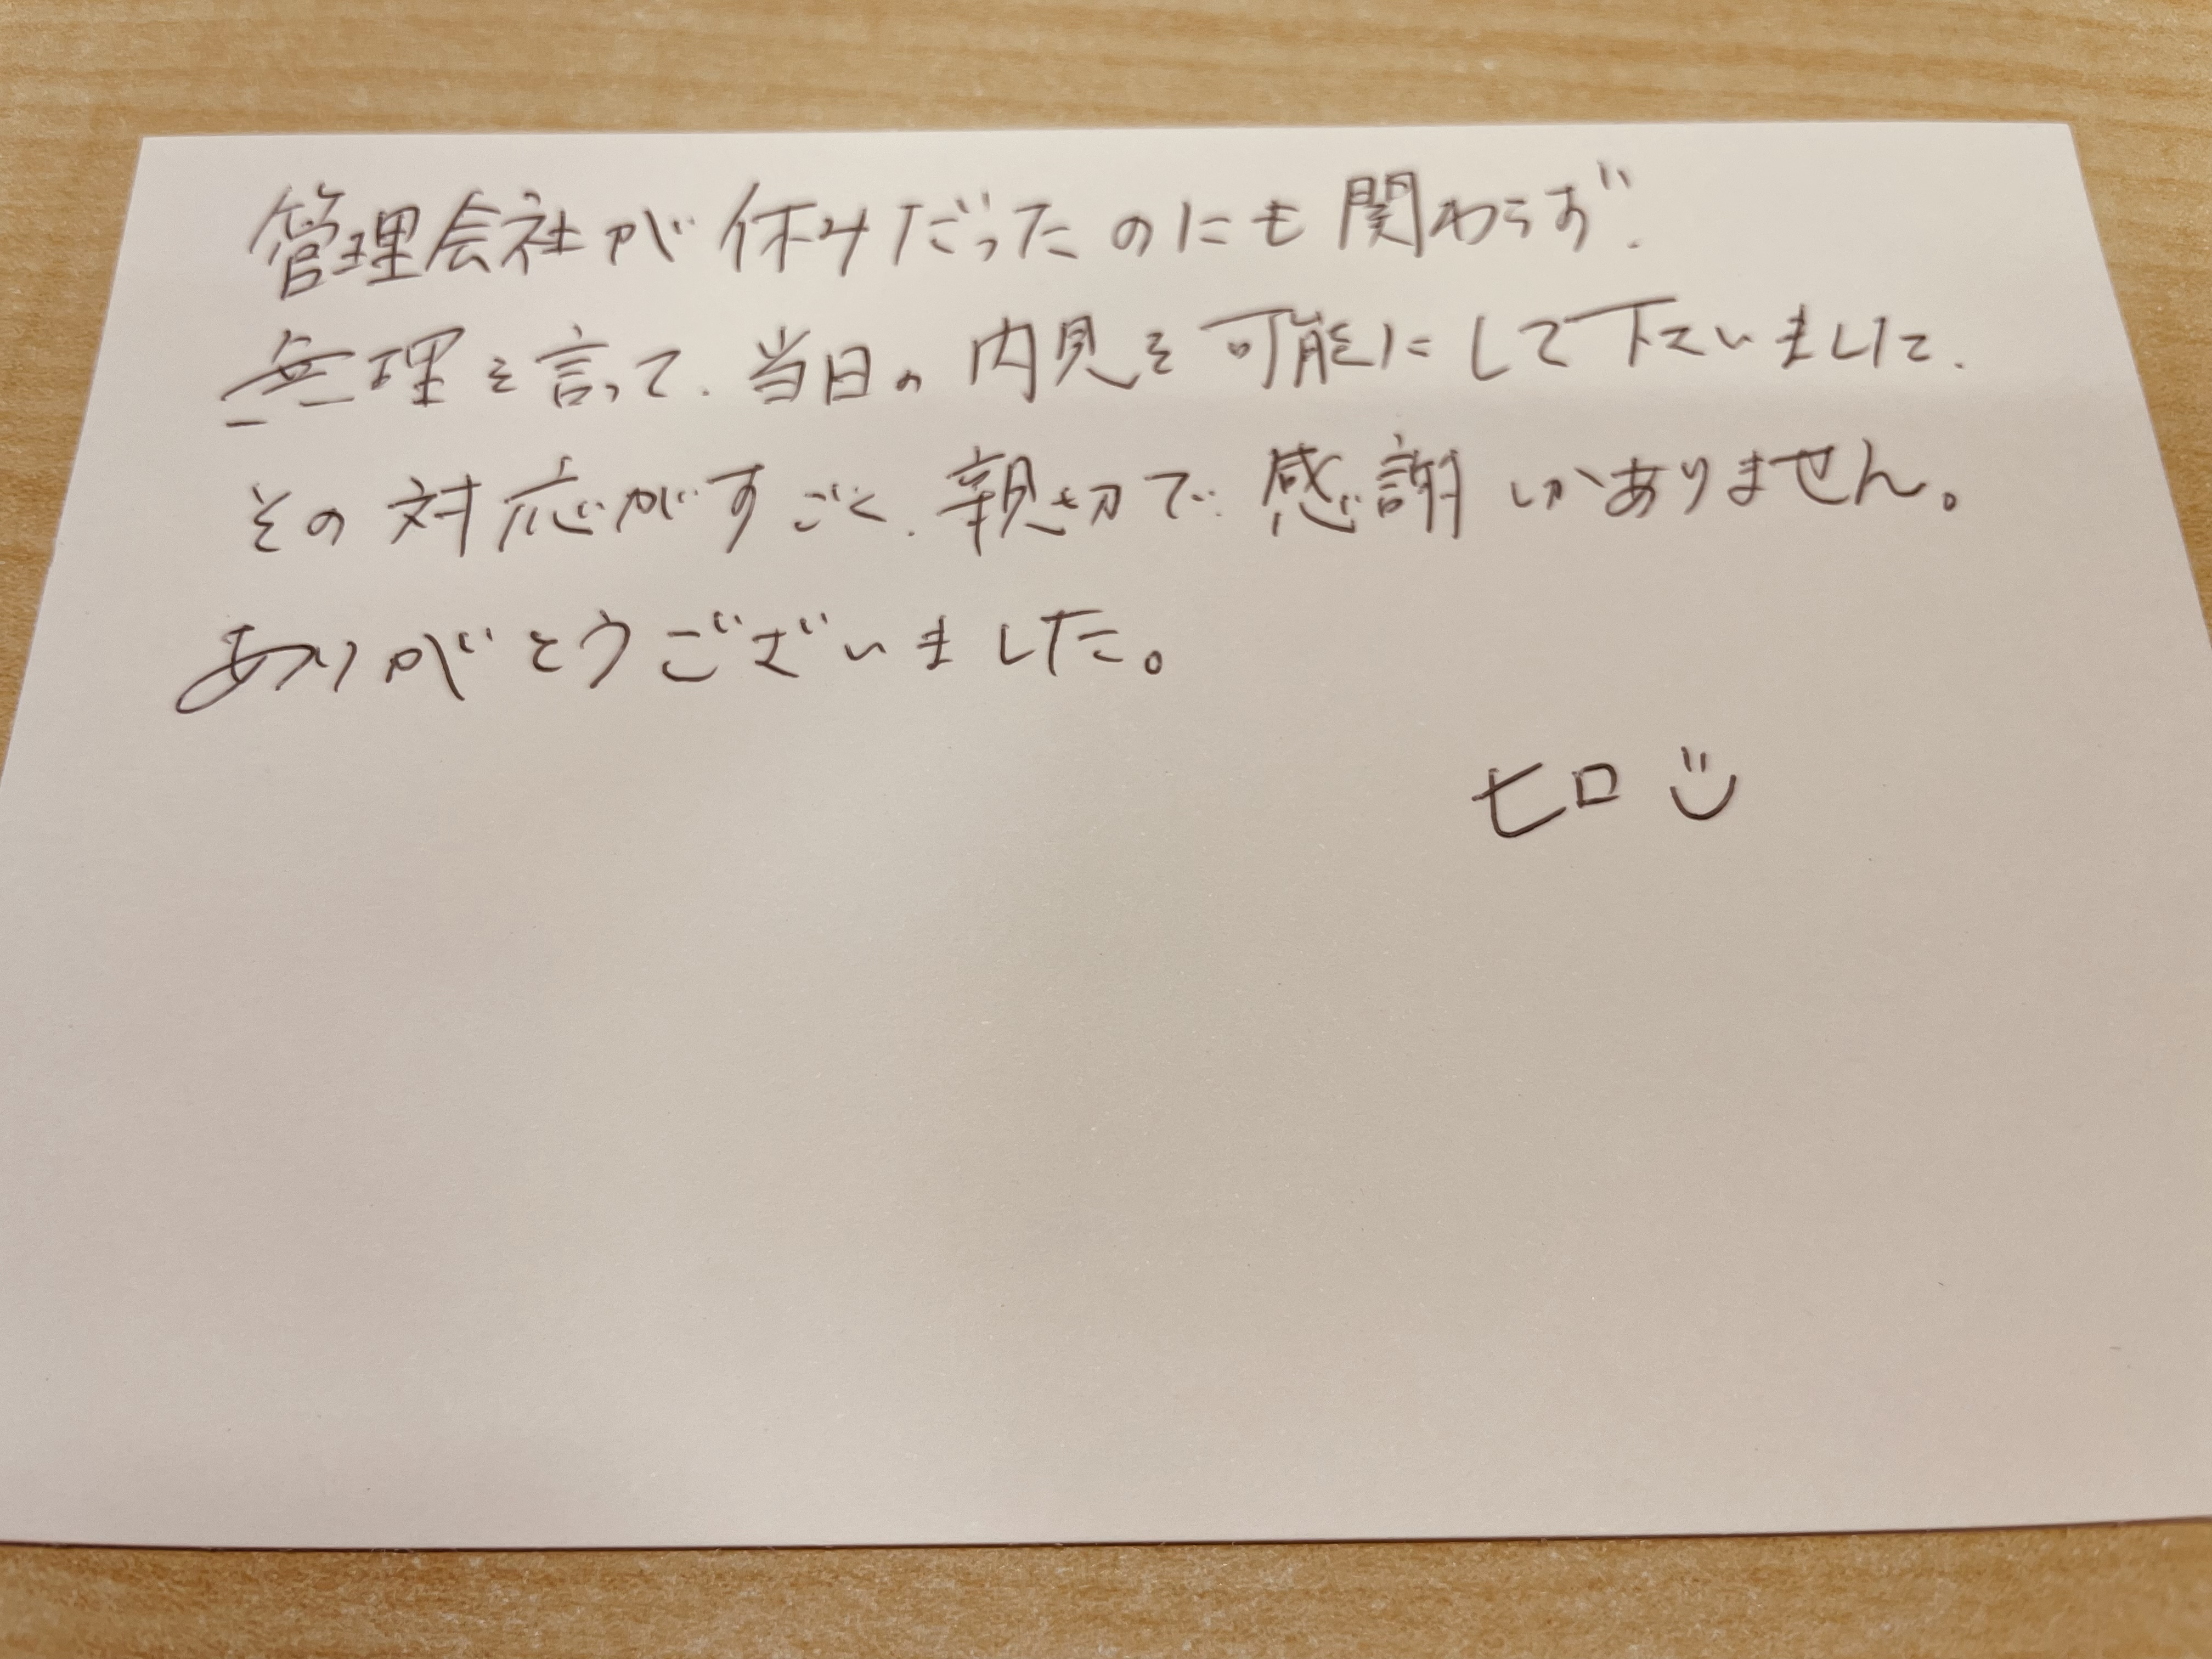 管理会社が休みだったのにも関わらず、
無理を言って、当日の内見を可能にして下さいました。
その対応がすごく、親切で、感謝しかありません。
ありがとうございました。
ヒロ